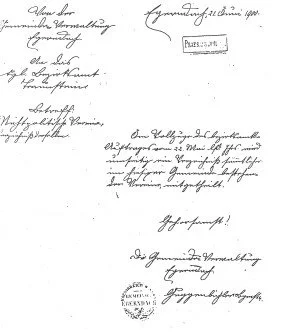 Von der
Gemeinde Verwaltung
Egerndach
An das
kgl. Bezirksamt
Traunstein
Betreff:
Nichtpolitische Vereine,
Egerndach, 22. Juni 1900.
Im Vollzuge des bezirksamtl.
Auftrages vom 22. Mai
ein Verzeichniß sämtlicher
in hiesiger Gemeinde bestehen-
den Vereine, mitgetheilt.
Gehorsamst!
Die Gemeinde Verwaltung
Egerndach